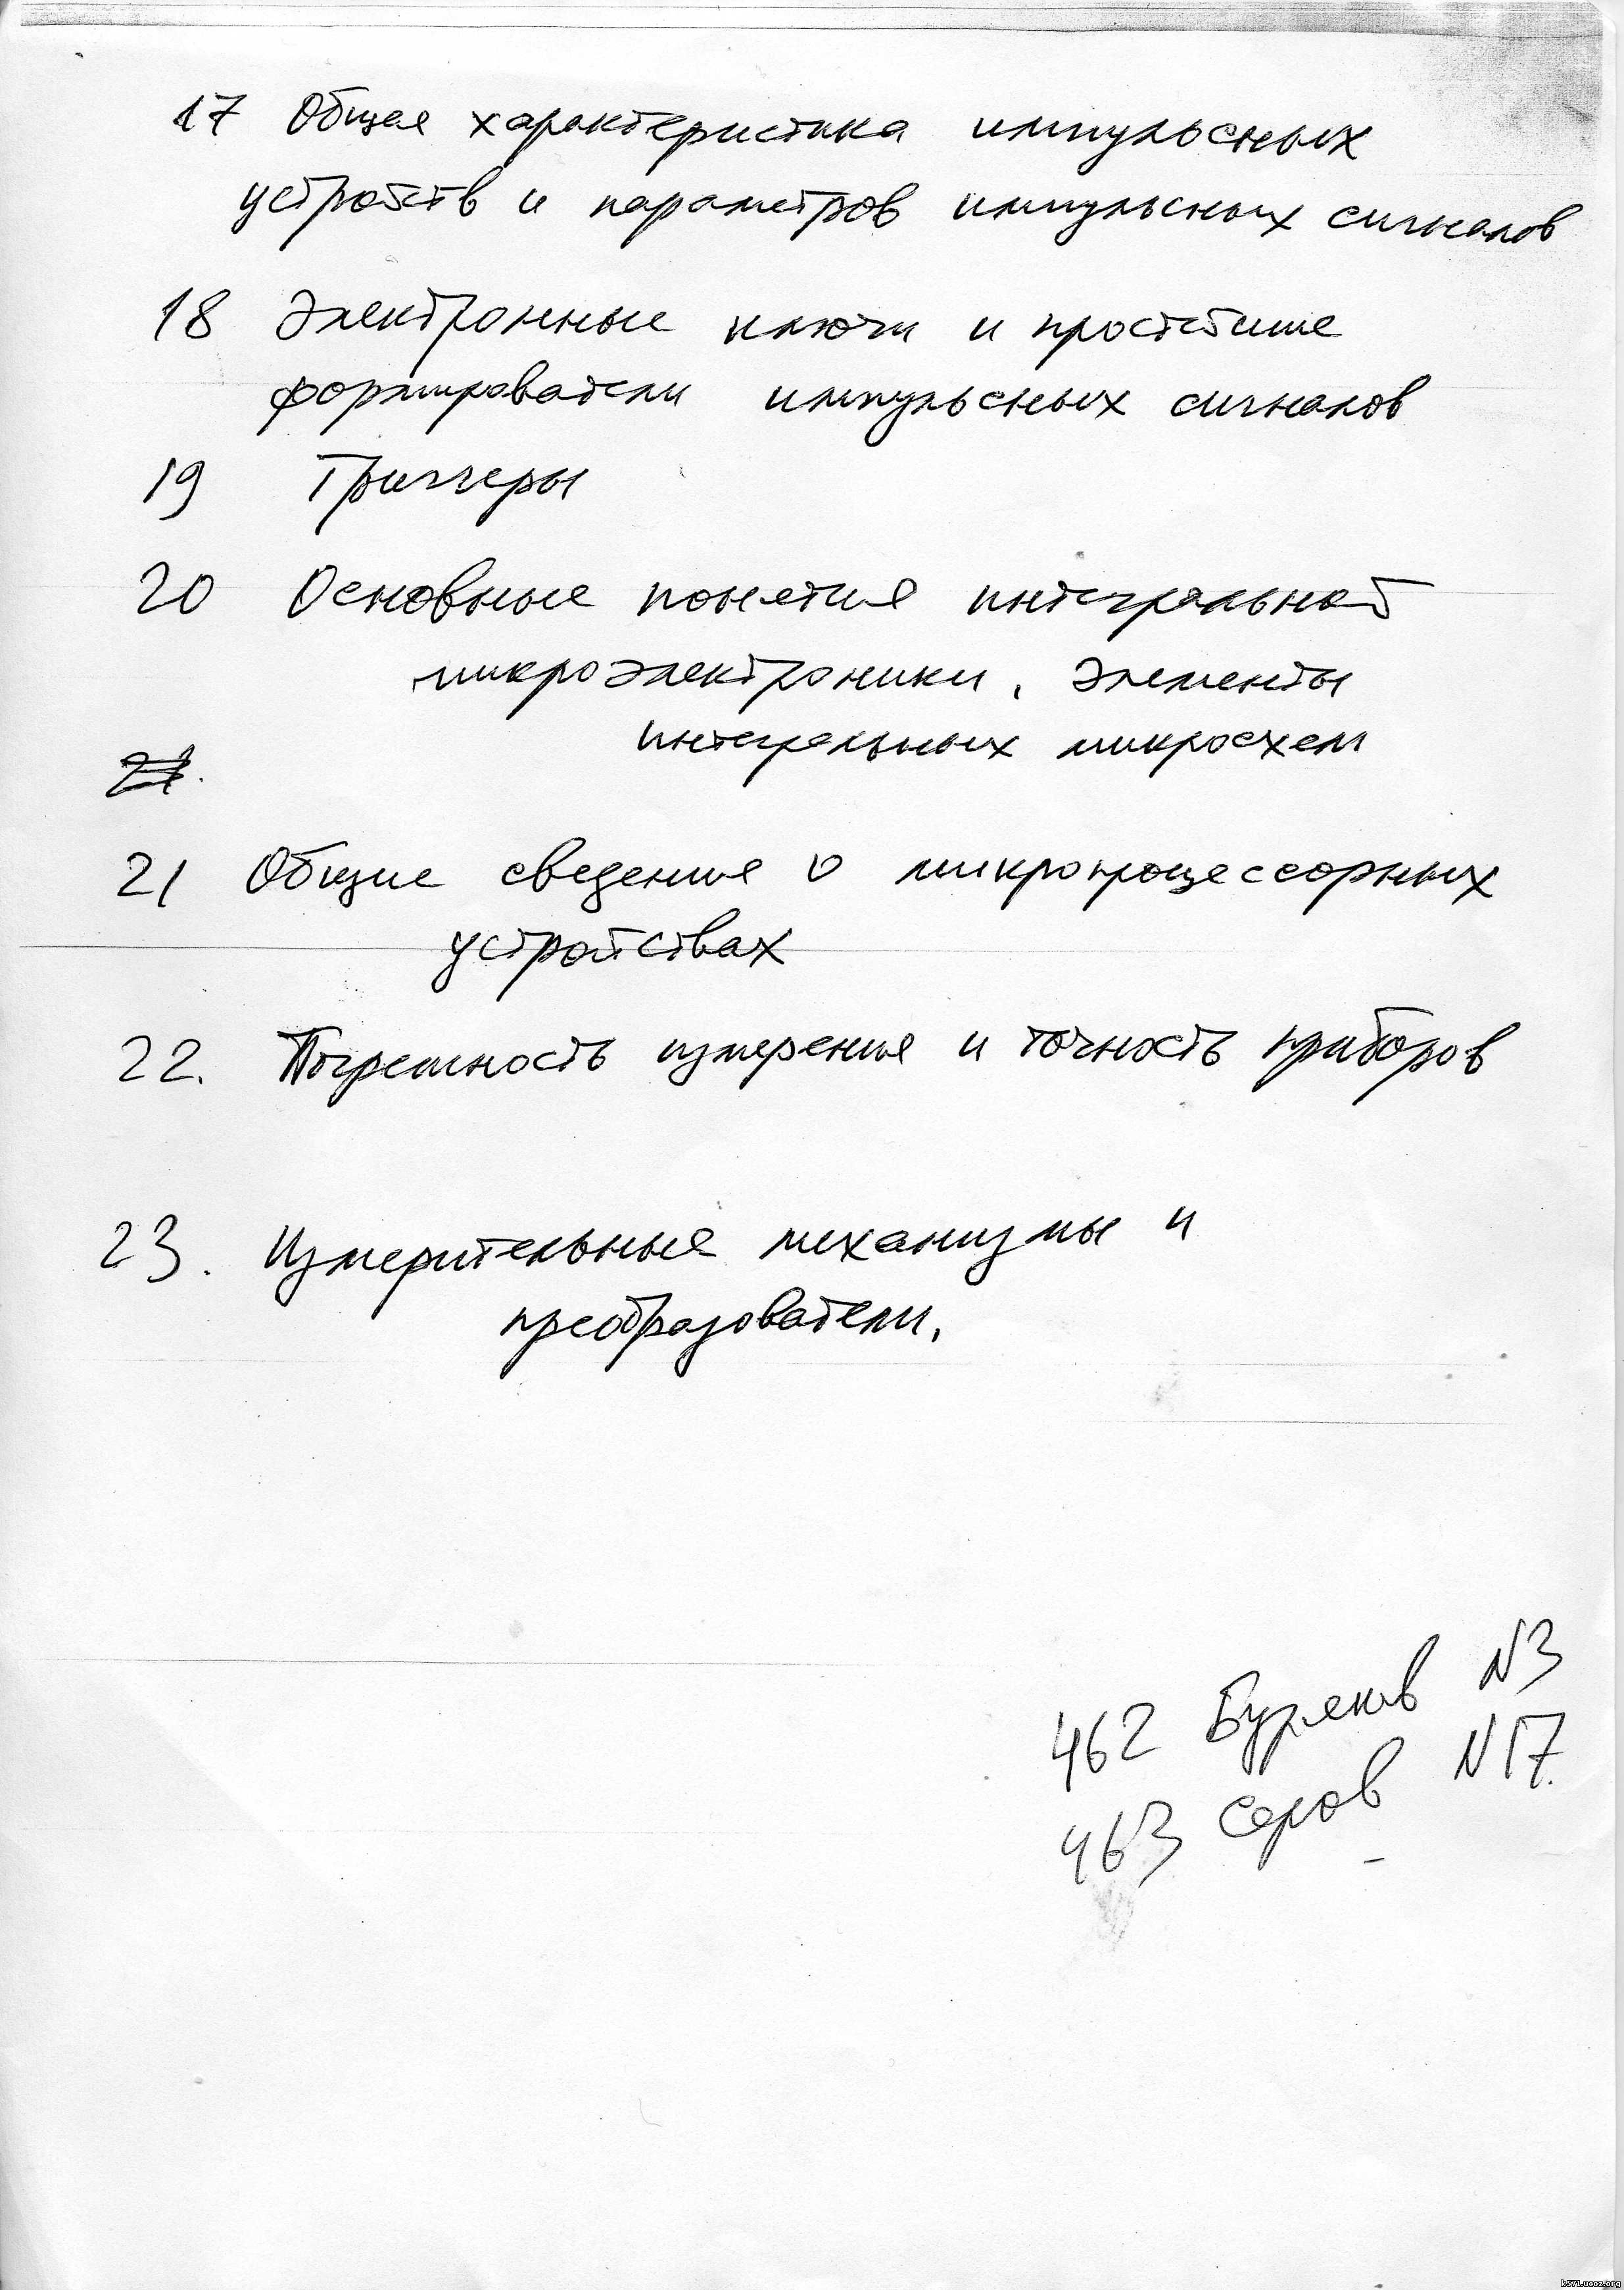 17 Общая характеристика импульсных
устройств и параметров импульсных сигналов
18 Электронные ключи и простейшие
формирователи импульсных сигналов
19 Триггеры
20 Основные понятия интегральной
микроэлектроники. Элементы
интегральных микросхем
21 Общие сведения о микропроцессорных
устройствах
22. Погрешность измерения и точность приборов
23. Измерительные механизмы и
преобразователи.
462 Буряков N3
463 Серов N17.
k571.ucoz.org